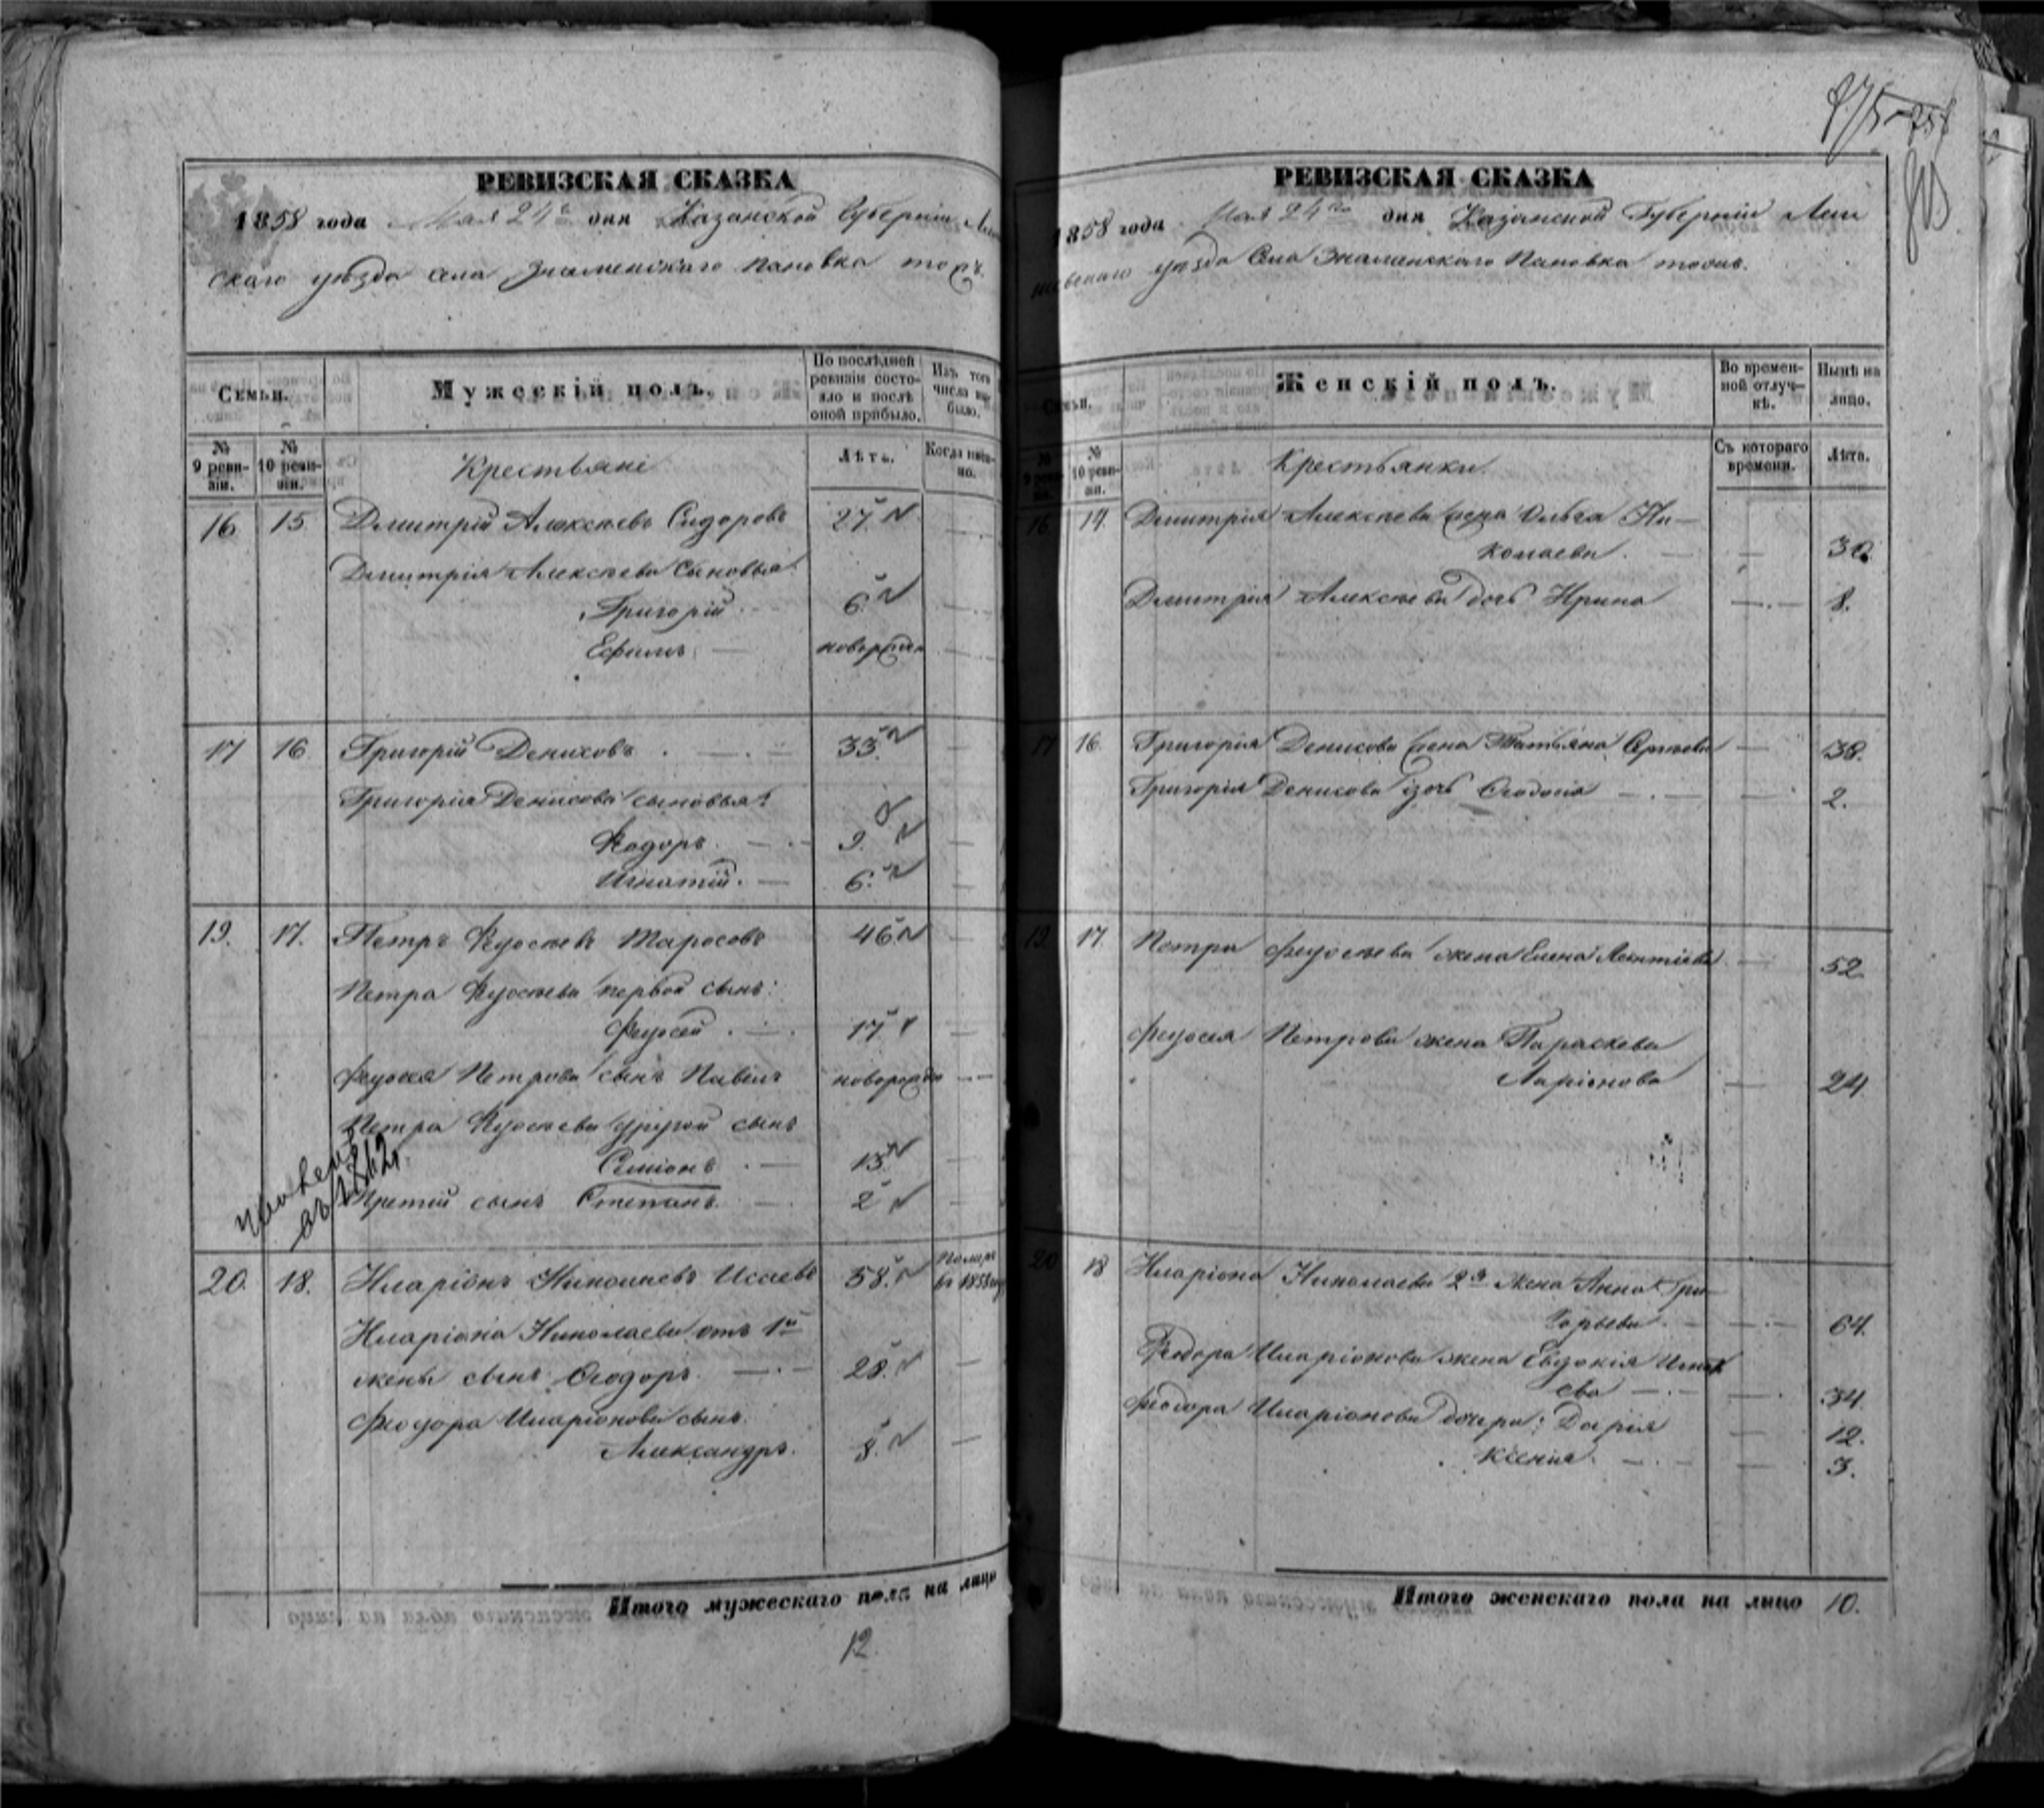 РЕВИЗСКАЯ СКАЗКА
1858 года Мая 24го дня Казанской Губерніи
скаго уѣзда села Знаменскаго Пановка тожъ.
Семьи.
Мужескій полъ.
По послѣдней ревизіи состояло и послѣ оной прибыло.
Изъ того числа выбыло.
№ 9 ревизіи.
№ 10 ревизіи.
Крестьяне
Лѣта.
Когда именно.
16 15 Дмитрій Алексѣевъ Сидоровъ 27
Дмитрія Алексѣева сыновья:
Григорій 6
Ефимъ новорожден
17 16. Григорій Денисовъ 33
Григорія Денисова сыновья:
Ѳедоръ 9.
Игнатій. 6.
19. 17. Петръ Ѳедосѣевъ Тарасовъ 46
Петра Ѳедосѣева первой сынъ:
Федосей 17
Федосея Петрова сынъ Павелъ новорожден
Петра Ѳедосѣева другой сынъ
Семіонъ 13
Третій сынъ Степанъ 2
20. 18. Иларіонъ Николаевъ Исаевъ 58. Помре въ 1855
Иларіона Николаева отъ 1й
жены сынъ Ѳеодоръ 28.
Феодора Иларіонова сынъ
Александръ. 8.
Итого мужескаго пола на лицо
12
РЕВИЗСКАЯ СКАЗКА
1858 года Мая 24го дня Казанской Губерніи Лаи
шевскаго уѣзда Села Знаменскаго Пановка тожъ.
Семьи.
Женскій полъ.
Во временной отлучкѣ.
Нынѣ на лицо.
№ 9 ревизіи.
№ 10 ревизіи.
Крестьянки
Съ котораго времени.
Лѣта.
16 14. Дмитрія Алексѣева жена Ольга Ни-
колаева. 30.
Дмитрія Алексѣева дочь Ирина 8.
17 16. Григорія Денисова жена Татьяна Сергѣева 38.
Григорія Денисова дочь Ѳеодосія 2.
19. 17. Петра Федосѣева жена Елена Леонтіева 52
Федосея Петрова жена Параскева
Ларіонова 24
20 18 Иларіона Николаева 2я жена Анна Гри-
горьева. 64.
Ѳеодора Иларіонова жена Евдокія Игнать
ева 34.
Феодора Иларіонова дочери: Дарія 12.
Ксенія. 3.
Итого женскаго пола на лицо 10.